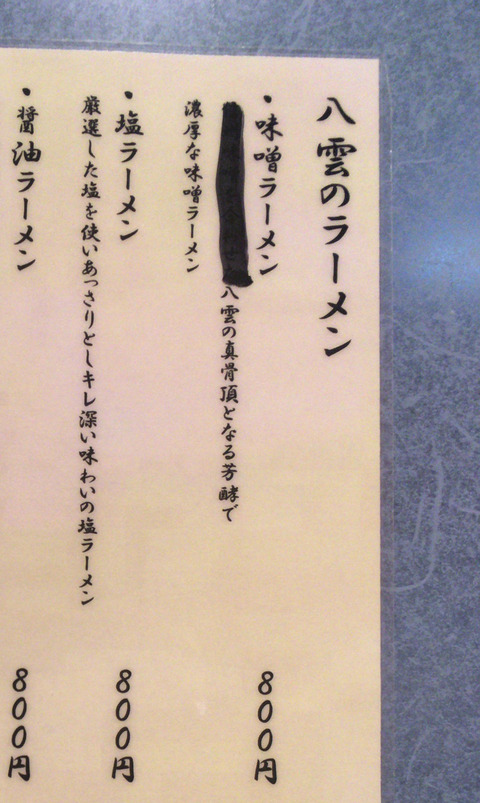 八雲のラーメン
・味噌ラーメン 800円
八雲の真骨頂となる芳酵で
濃厚な味噌ラーメン
・塩ラーメン 800円
厳選した塩を使いあっさりとしキレ深い味わいの塩ラーメン
・醤油ラーメン 800円